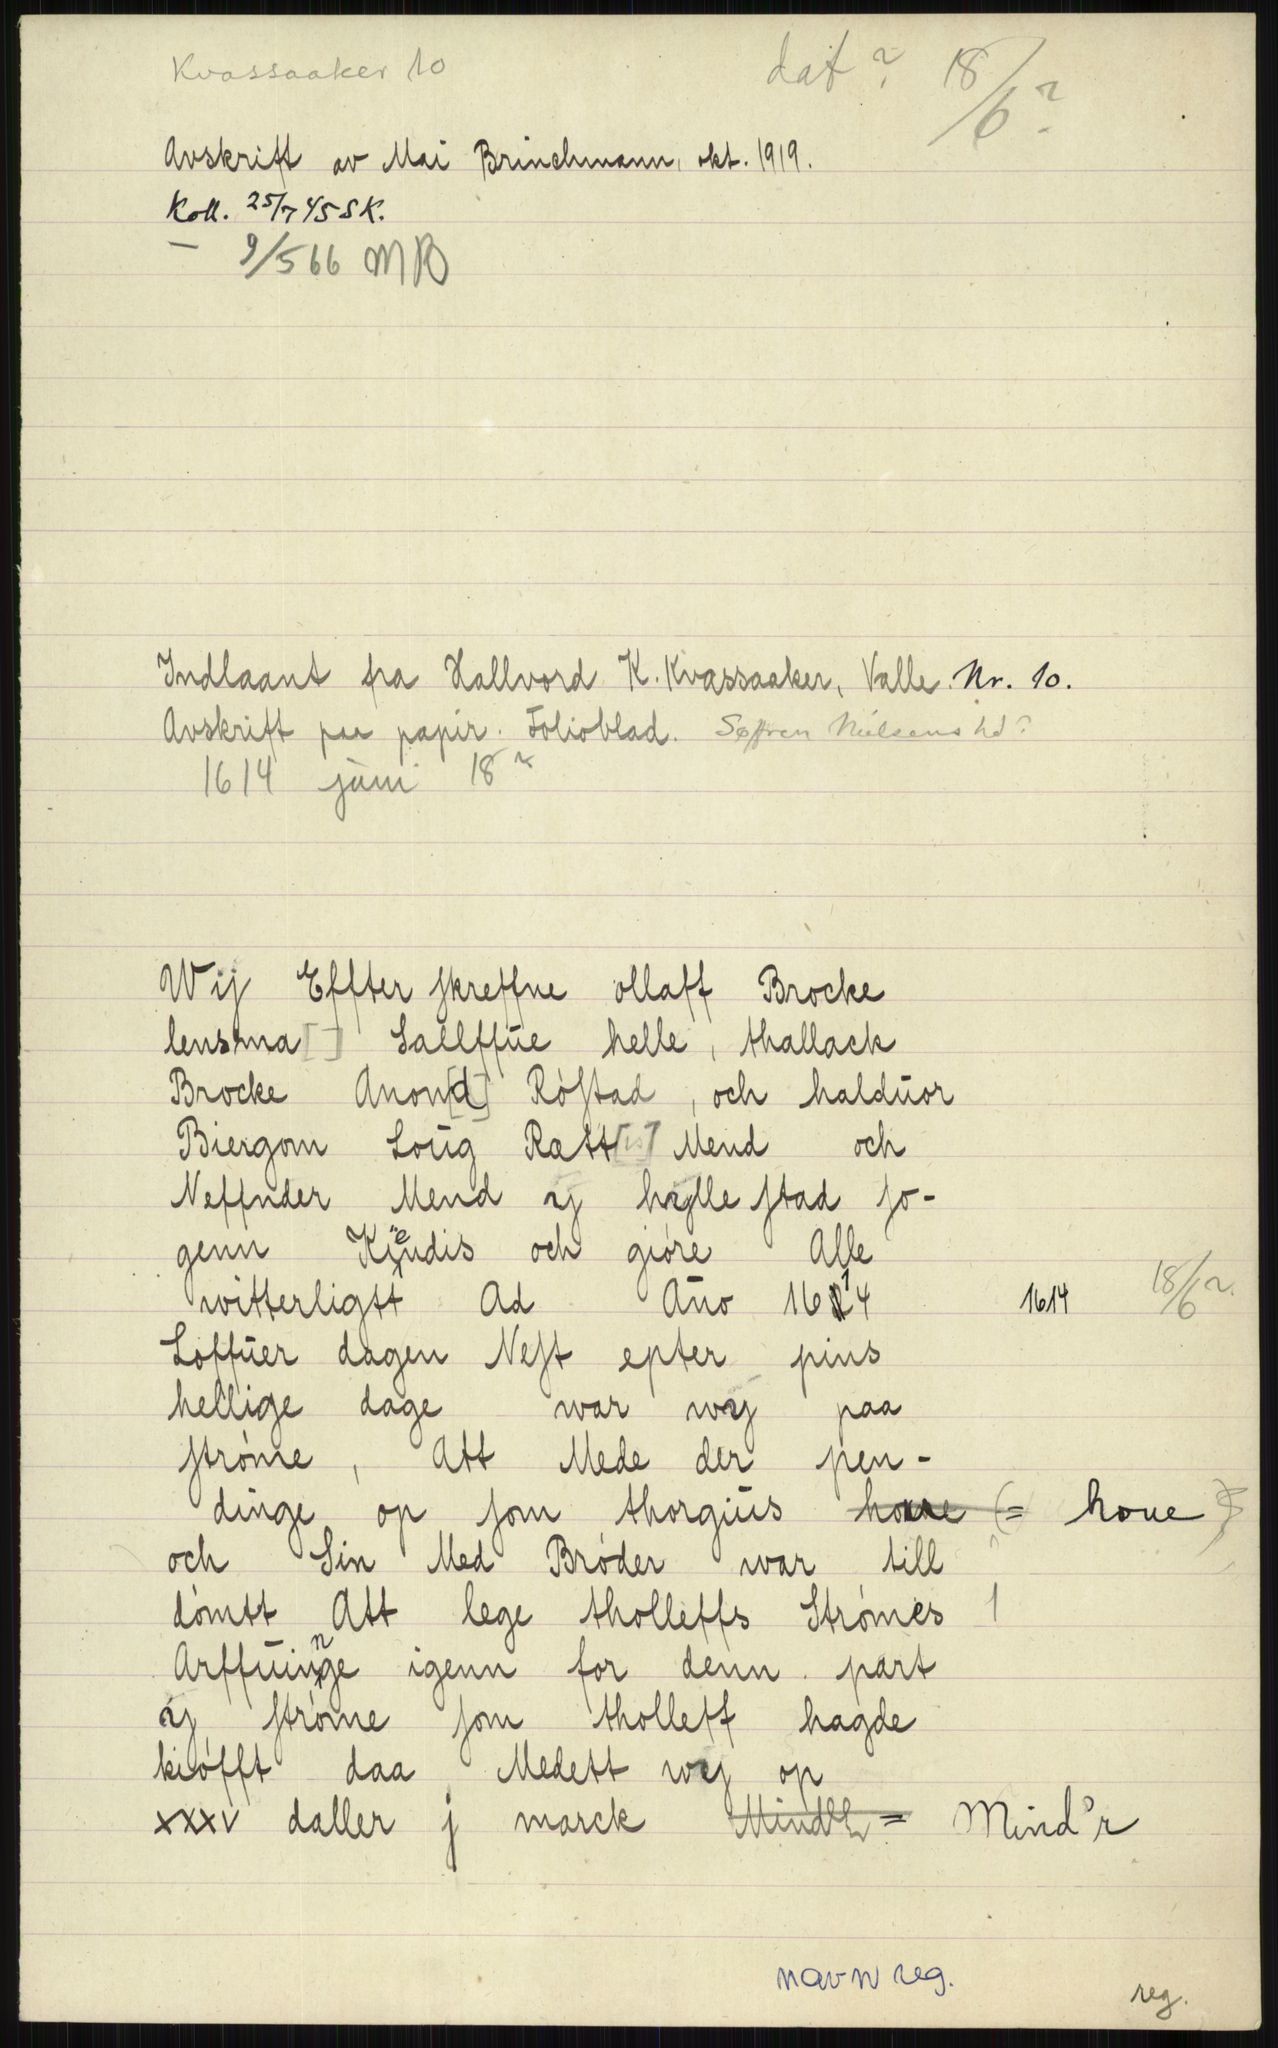 Kvassaaker 10
dat ? 18/6 ?
Avskrift av Mai Brinchmann, okt. 1919.
Koll. 25/7 45 SK.
— 9/5 66 MB
Indlaant fra Hallvord K. Kvassaaker, Valle. Nr. 10.
Avskrift paa papir. Folioblad. Søffren Nielsens hd?
1614 juni 18 ?
Wij Effter skreffne ollaff Brocke
lensma[ ] Sallffue helle, thallack
Brocke Anon[d] Röstad, och halduor
Biergom Loug Rætt[is] Mend och
Neffnder Mend ij hyllestad so-
genn Kiendis och gióre Alle
witterligtt Ad Año 1614 1614 18/6 ?
Löffuer dagen Nest epter pins
hellige dage war wij paa
ströme, Att Mede der pen-
dinge op som thorgius houe (= houe)
och Sin Med Bróder war till
dómtt Att lege tholleffs Strómes
Arffuinge igenn for denn part
ij stróme som tholleff hagde
kiófft daa Medett wij op
xxxv daller j marck = Mind'r
navn reg.
reg.